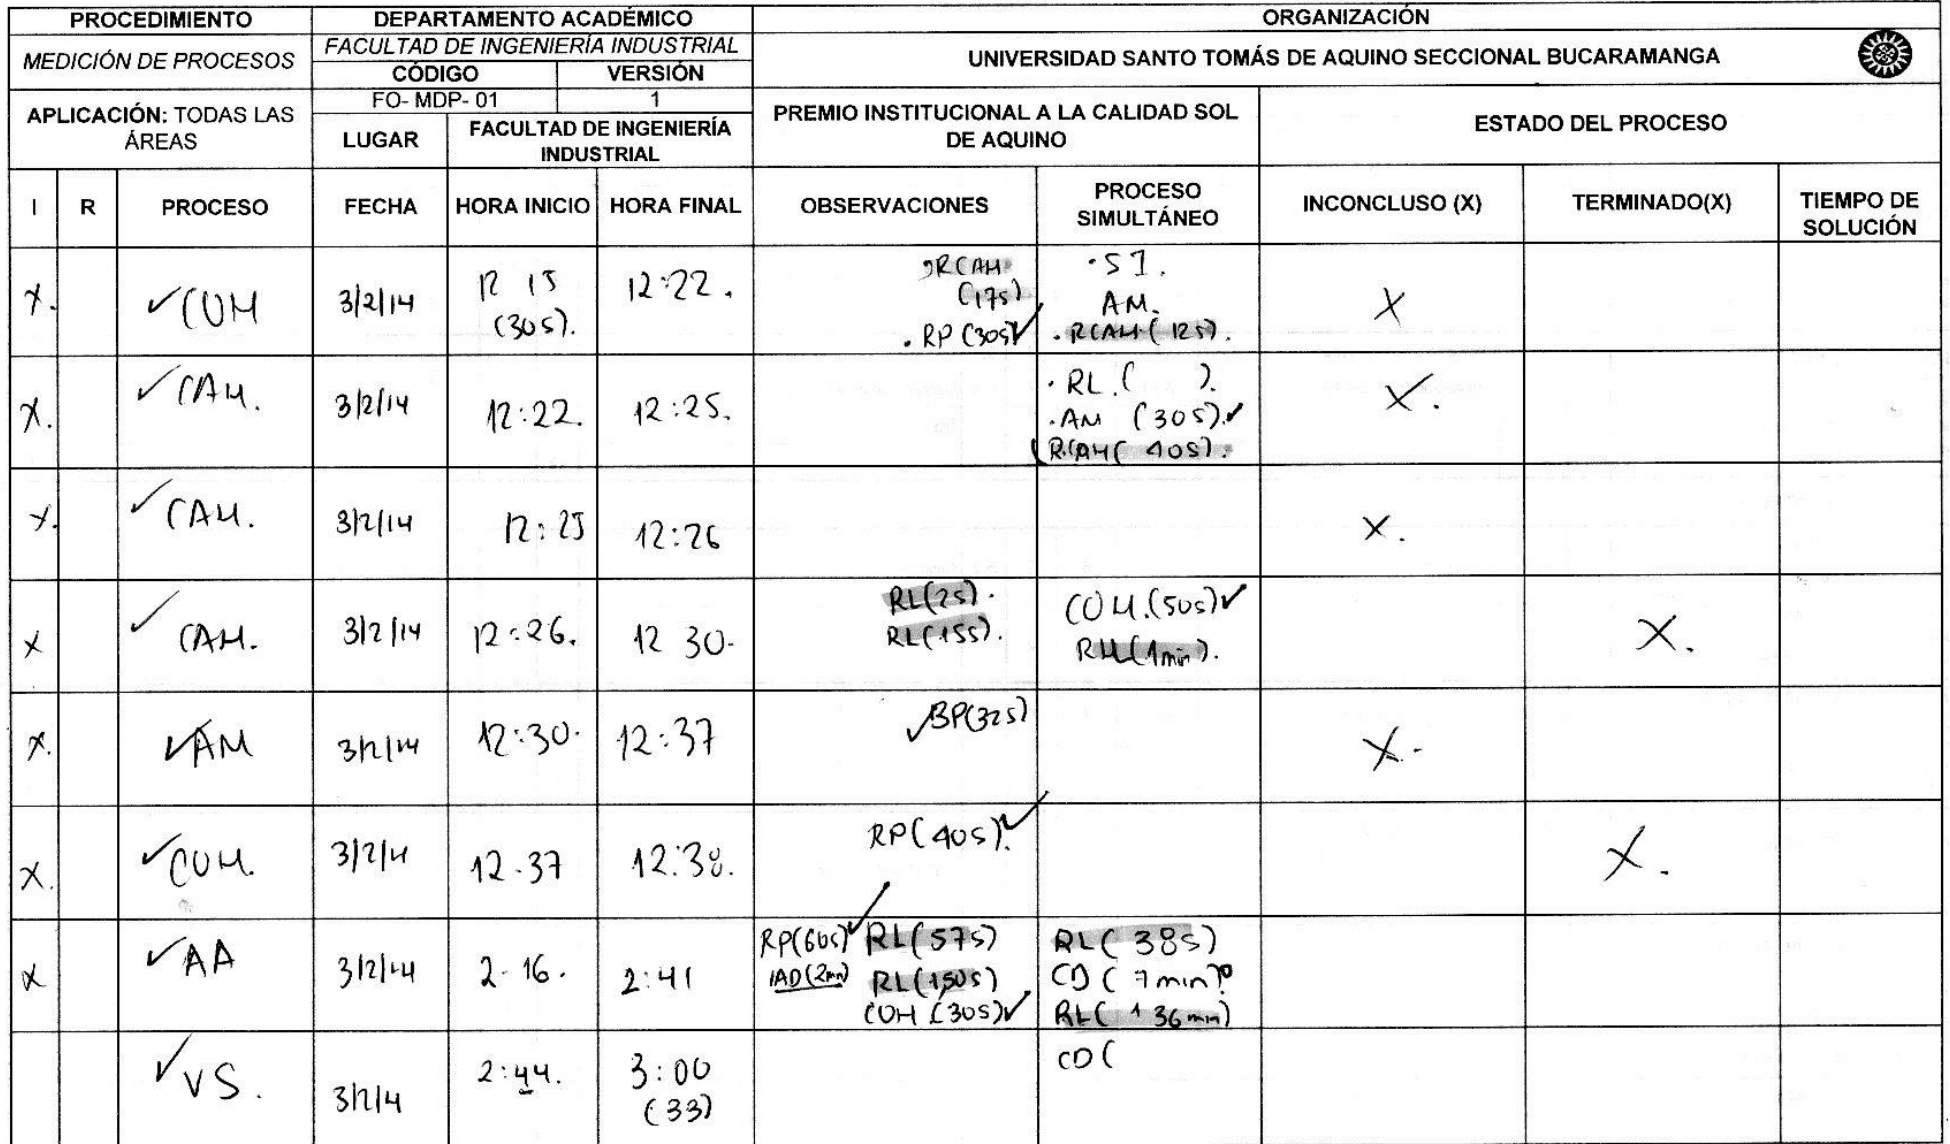 PROCEDIMIENTO DEPARTAMENTO ACADÉMICO ORGANIZACIÓN
MEDICIÓN DE PROCESOS FACULTAD DE INGENIERÍA INDUSTRIAL UNIVERSIDAD SANTO TOMÁS DE AQUINO SECCIONAL BUCARAMANGA
CÓDIGO VERSIÓN
FO- MDP- 01 1
APLICACIÓN: TODAS LAS ÁREAS
LUGAR FACULTAD DE INGENIERÍA INDUSTRIAL
PREMIO INSTITUCIONAL A LA CALIDAD SOL DE AQUINO ESTADO DEL PROCESO
I R PROCESO FECHA HORA INICIO HORA FINAL OBSERVACIONES PROCESO SIMULTÁNEO INCONCLUSO (X) TERMINADO(X) TIEMPO DE SOLUCIÓN
X. ✓COM 3/2/14 12 15 (30s). 12:22. RCAM (17s) . RP (30s)✓ AM. . RCAM (12s). X
X. ✓CAM. 3/2/14 12:22. 12:25. . RL. ( ). .AM (30s).✓ RCAM( 40s). X.
X. ✓CAM. 3/2/14 12:25 12:26 X.
X ✓CAM. 3/2/14 12:26. 12 30. RL(2s). RL(15s). COM.(50s)✓ RM(1min). X.
X. ✓AM 3/2/14 12:30. 12:37 ✓BP(32s) X.
X. ✓COM. 3/2/4 12.37 12:38. RP(40s).✓ X.
X ✓AA 3/2/14 2-16. 2:41 RP(60s)✓ RL(57s) IAD(2mn) RL(1,50s) COM (30s)✓ RL( 38s) CD ( 7min) RL( 1 36min)
✓VS. 3/2/4 2:44. 3:00 (33) CD (